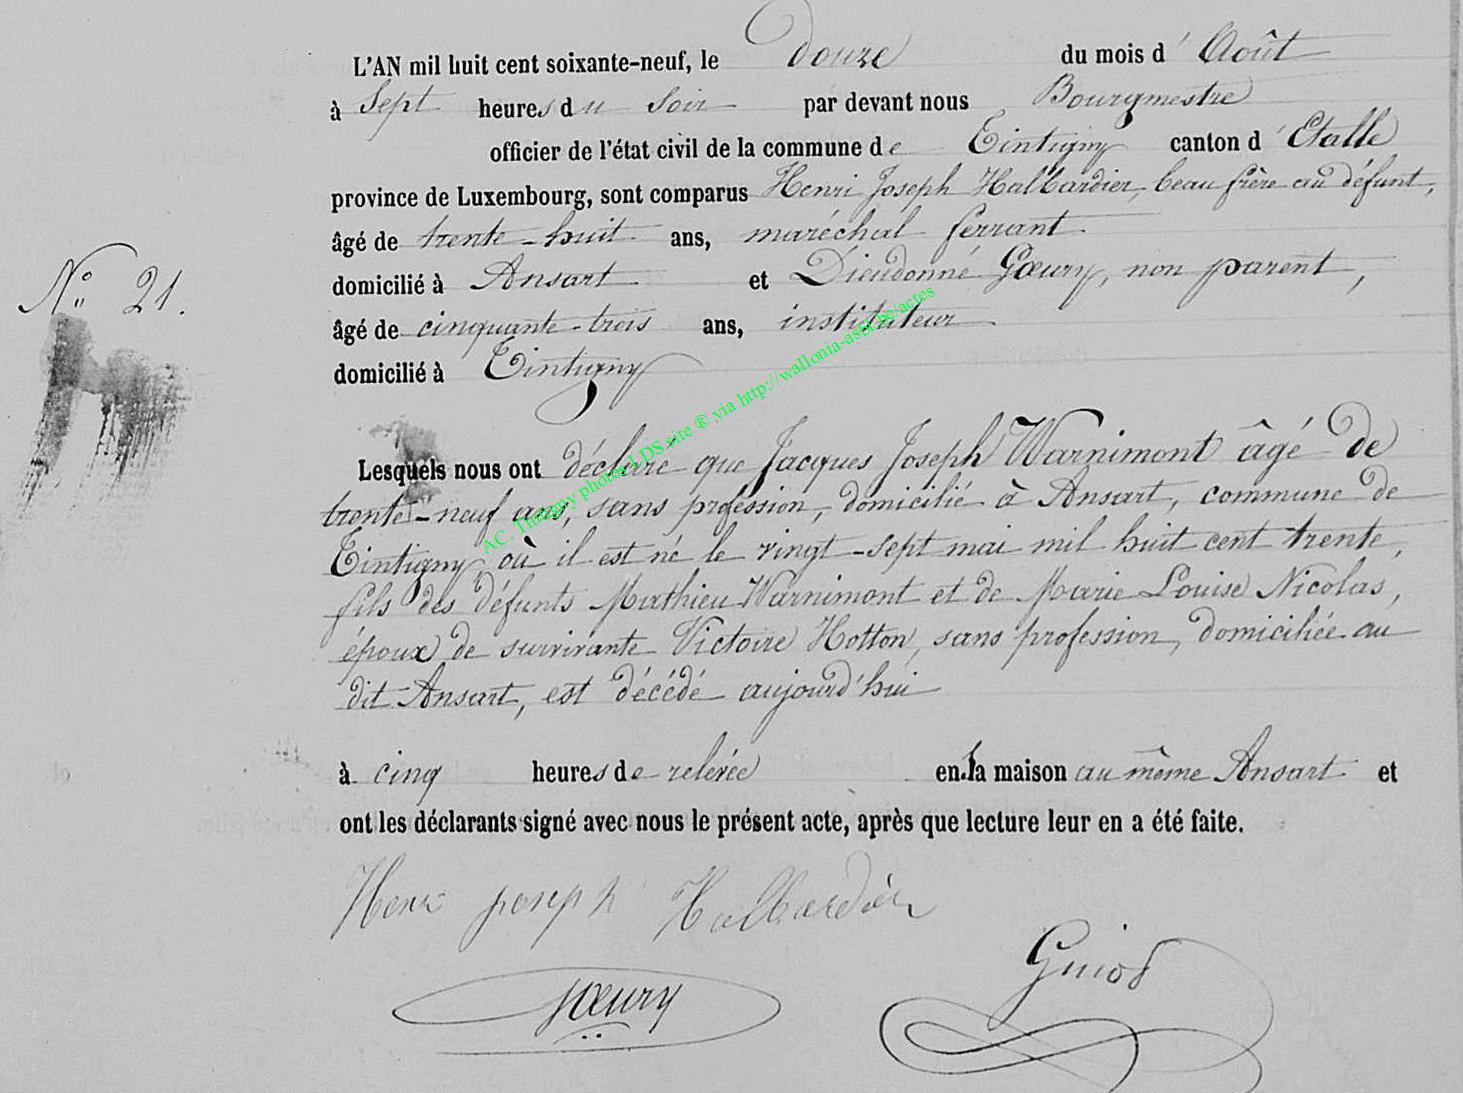 L'AN mil huit cent soixante-neuf, le douze du mois d' Août
à Sept heures du soir par devant nous Bourgmestre
officier de l'état civil de la commune de Tintigny canton d' Etalle
province de Luxembourg, sont comparus Henri Joseph Halbardier, beau frère au défunt,
âgé de trente-huit ans, maréchal ferrant
N° 21.
domicilié à Ansart et Dieudonné Goeury, non parent,
âgé de cinquante-trois ans, instituteur
domicilié à Tintigny
AC. Tintigny photos LDS site ® via http://wallonia-asbl.be/actes
Lesquels nous ont déclaré que Jacques Joseph Warnimont âgé de
trente-neuf ans, sans profession, domicilié à Ansart, commune de
Tintigny, où il est né le vingt-sept mai mil huit cent trente,
fils des défunts Mathieu Warnimont et de Marie Louise Nicolas,
époux de survivante Victoire Hotton, sans profession, domiciliée au
dit Ansart, est décédé aujourd'hui
à cinq heures de relevée en la maison au même Ansart et
ont les déclarants signé avec nous le présent acte, après que lecture leur en a été faite.
Henri joseph Halbardier
Goeury
Guiot